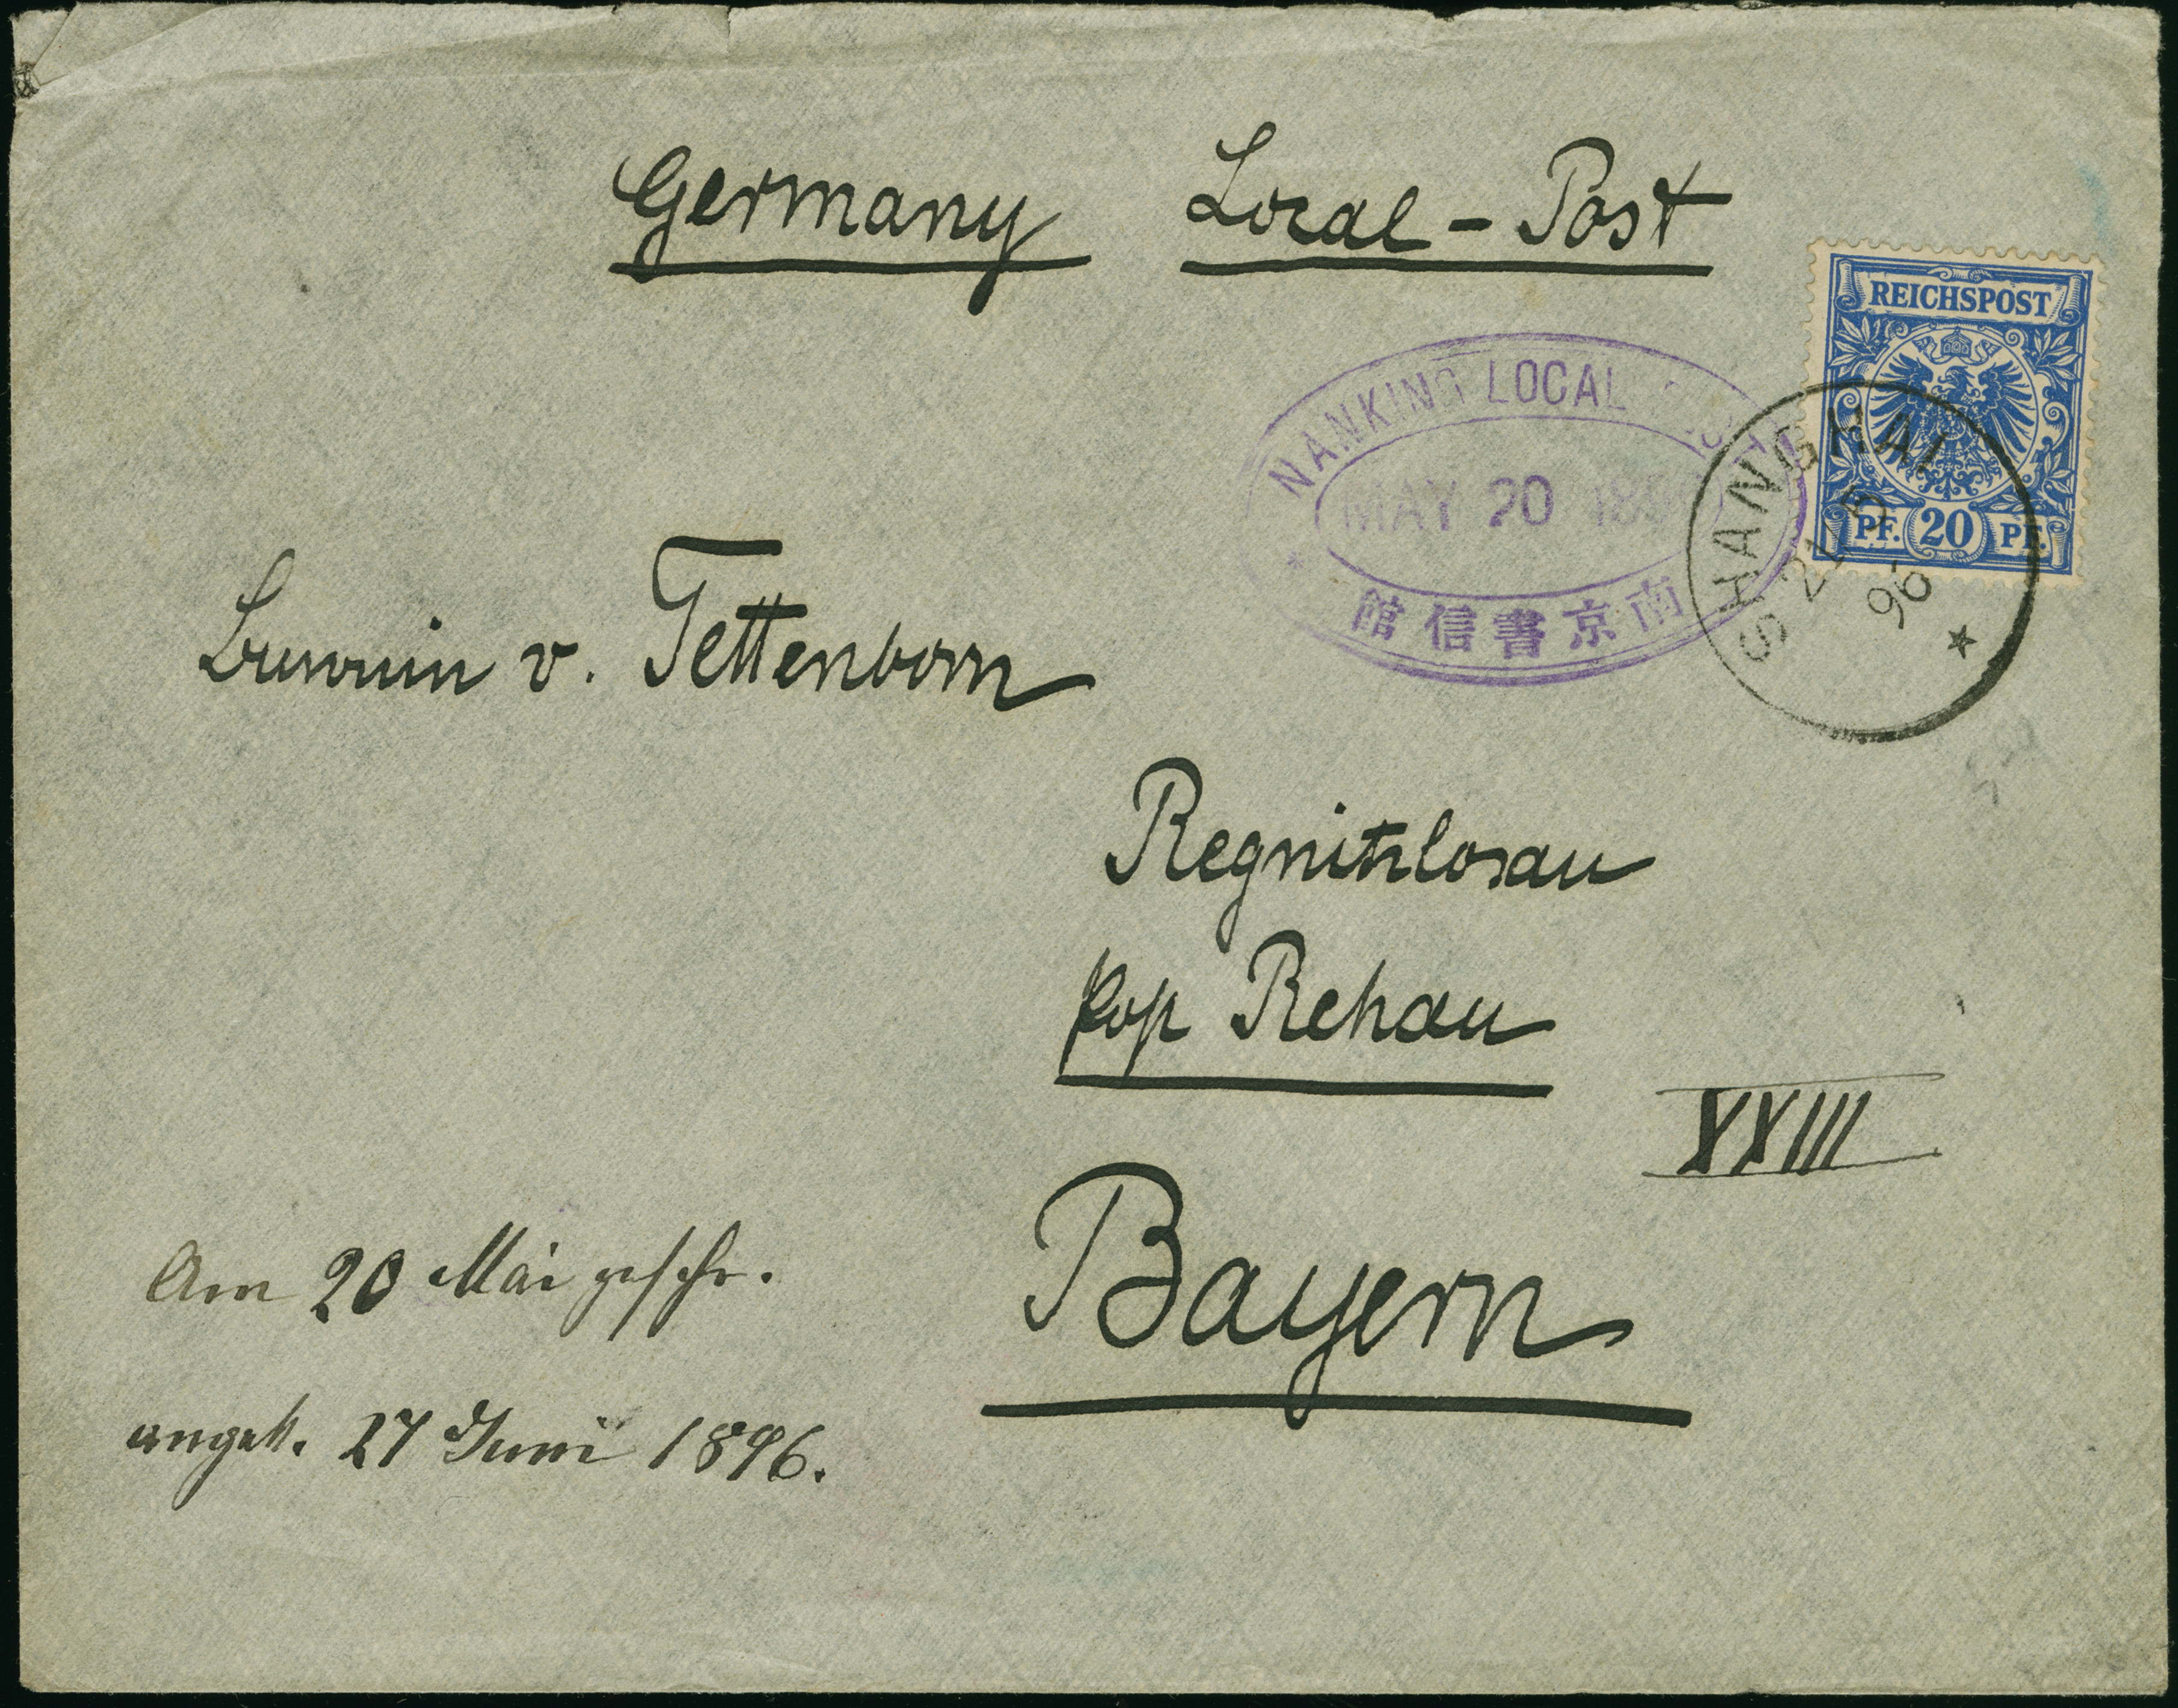 Germany Local - Post
REICHSPOST
PF. 20 PF.
NANKING LOCAL
MAY 20
館信書京南
SHANGHAI
21 5
96
v. Tettenborn
Regnitzlosau
Rehau
XXIII
Bayern
Am 20 Mai geschr.
angek. 27 Juni 1896.